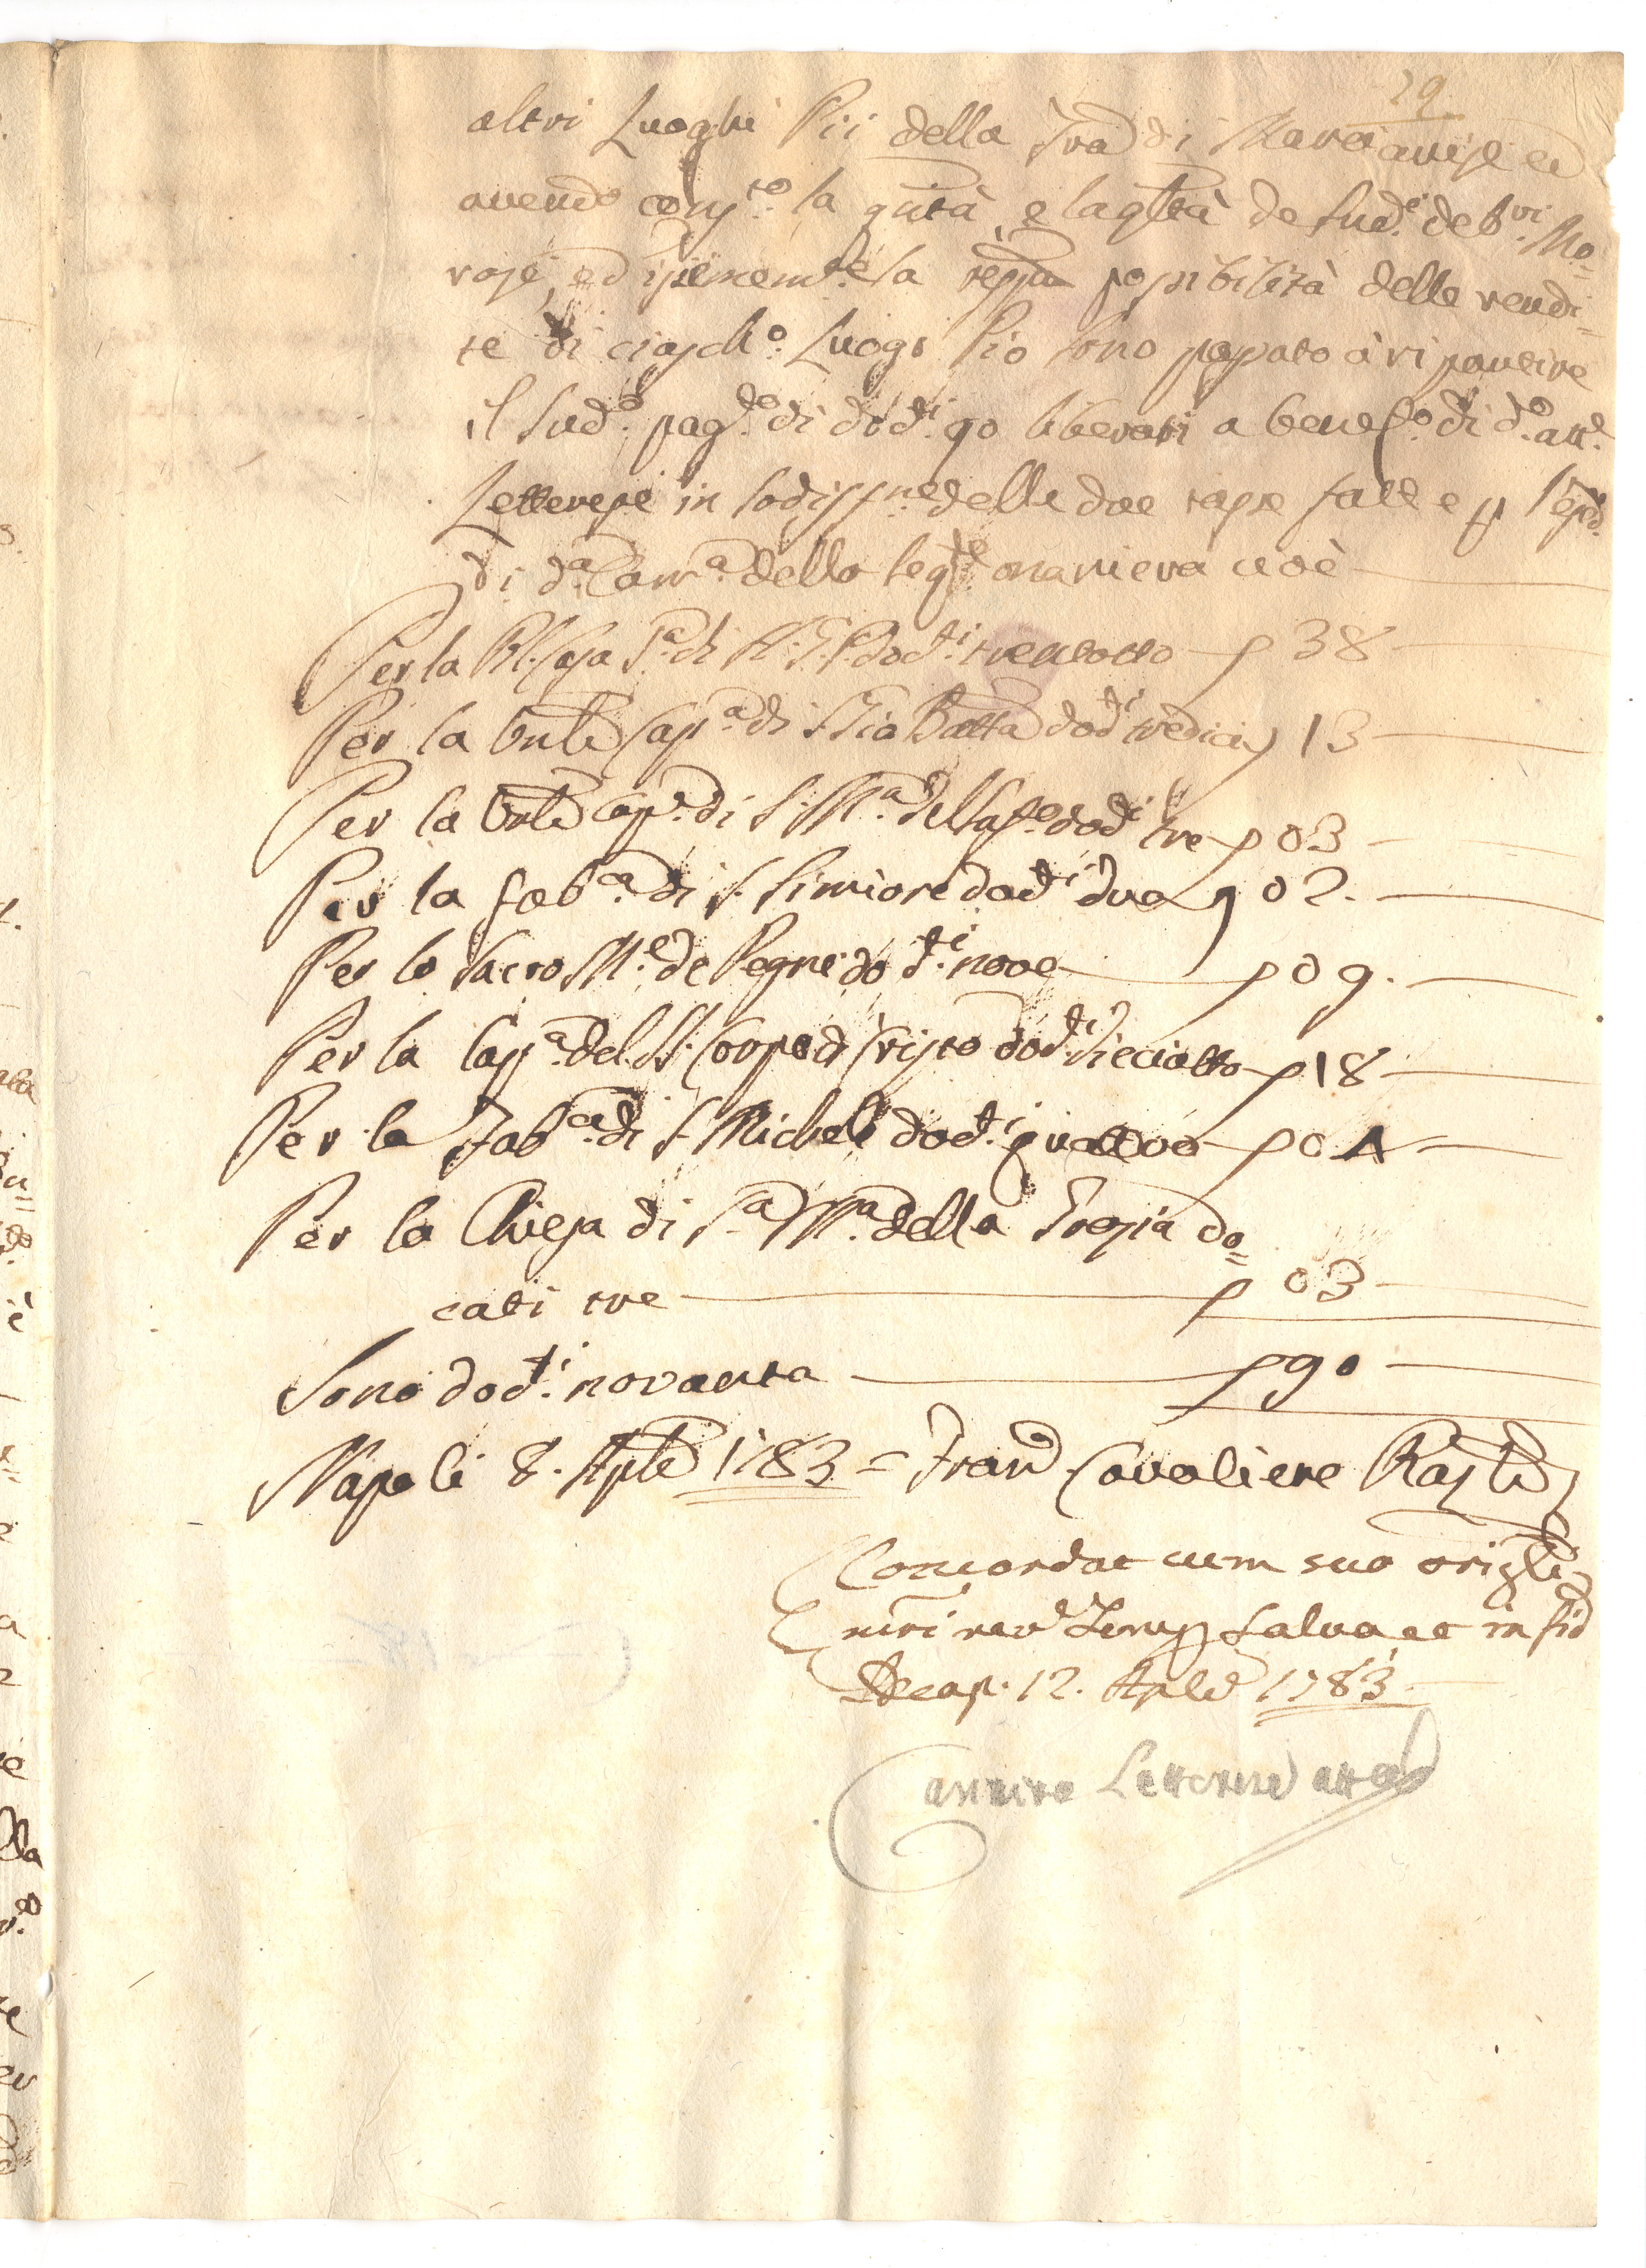 29
altri Luoghi Pii della Tra di Marcianise ed
avendo cons.to la qntà, e laqltà de sud.i deb.ri Mo=
rosi, ed ipsemem.te la possibilità delle rendi=
te di ciasch.o Luogo Pio sono passato à ripartire
il sud.o pag.to di dod.ti 90 liberati a benef.o di d.o att.e
Letterese in sodisf.ne delle doe tasse fatte
di d.a Cam.a dello seg.te maniera cioè
Per la Casa S.a di A. G. P. dod.ti trentotto 38
Per la Cap.a di S. Gio Batta dod.ti tredici 13
Per la Cap.a di S. M.a del dod.ti tre 03
Per la fab.ca di S. Simiore dod.ti due 02.
Per lo Sacro M.e de Pegni do.ti nove 09.
Per la Cap.a del SS. Corpo di Cristo dod.ti dieciotto 18
Per la Fab.ca di S. Michele dod.ti quattro 04
Per la Chiesa di S.a M.a della Grazia do=
cati tre 03
Sono dod.ti novanta 90
Napoli 8. Aple 1783 = Fran Cavaliere
Concordat cum suo origli
salva et in fid
12. Aple 1783
Letterese att